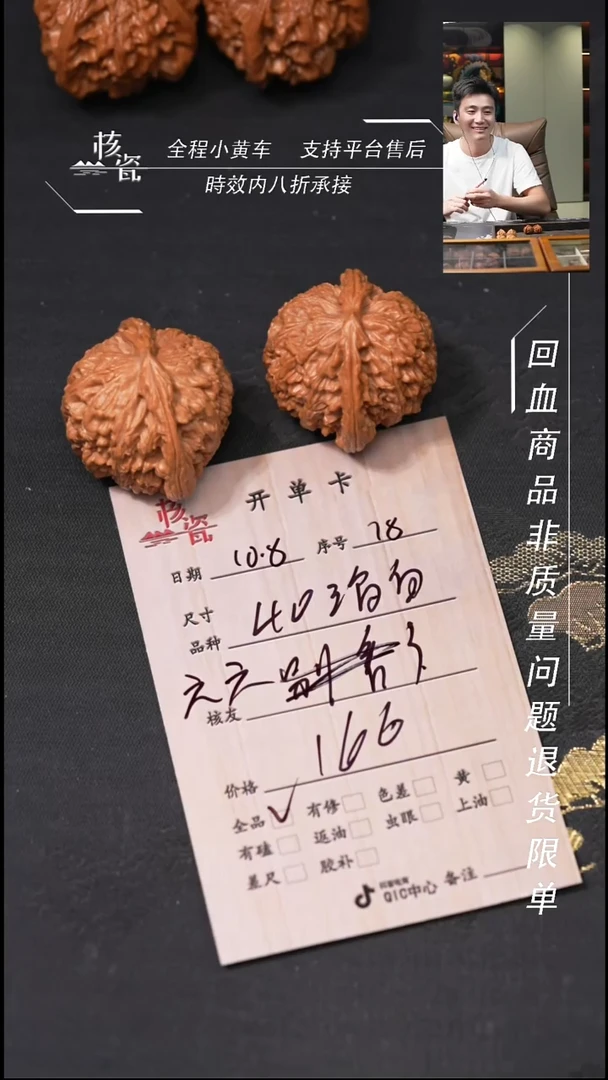 核瓷
全程小黄车 支持平台售后
時效内八折承接
回血商品非质量问题退货限单
核瓷
开单卡
日期 10.8 序号 78
尺寸
品种 40
核友 六六
价格 166
全品 ✓ 有修 色差 黄
有磕 返油 虫眼 上油
差尺 胶补
QIC中心 备注